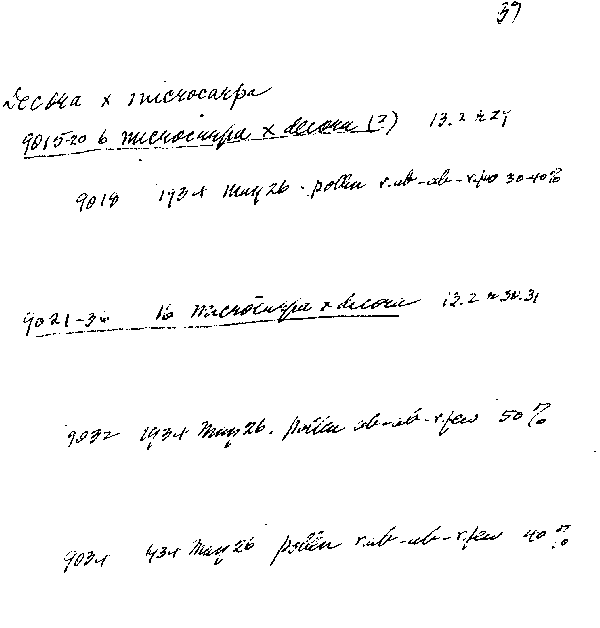 37
Decora x microcarpa
9015-20 6 microcarpa x decora (?) 13.2 r 29
9018 1934 May 26 - pollen r.ab-ab-r.few 30-40%
9021-36 16 microcarpa x decora 13.2 r 30.31
9032 1934 May 26. pollen ab-ab-r.few 50%
9034 434 May 26 pollen r.ab-ab-r.few 40%